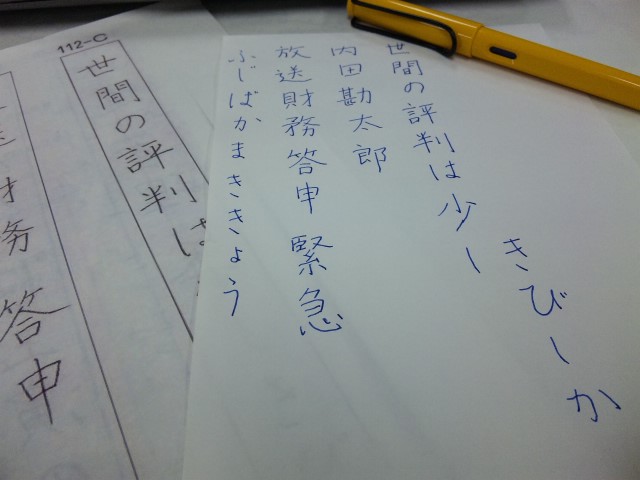 きびしか
世間の評判は少し
内田勘太郎
放送財務答申 緊急
ふじばかまききょう
112-C
世間の評判は
財務答申